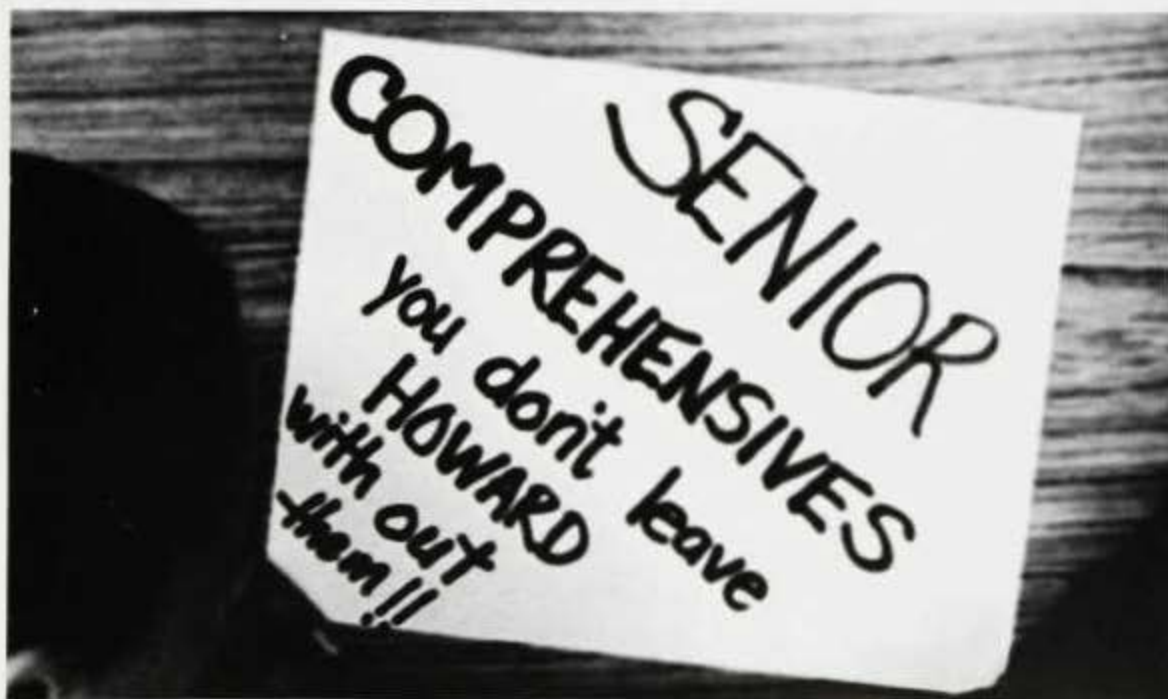 SENIOR
COMPREHENSIVES
you don't leave
HOWARD
with out
them!!